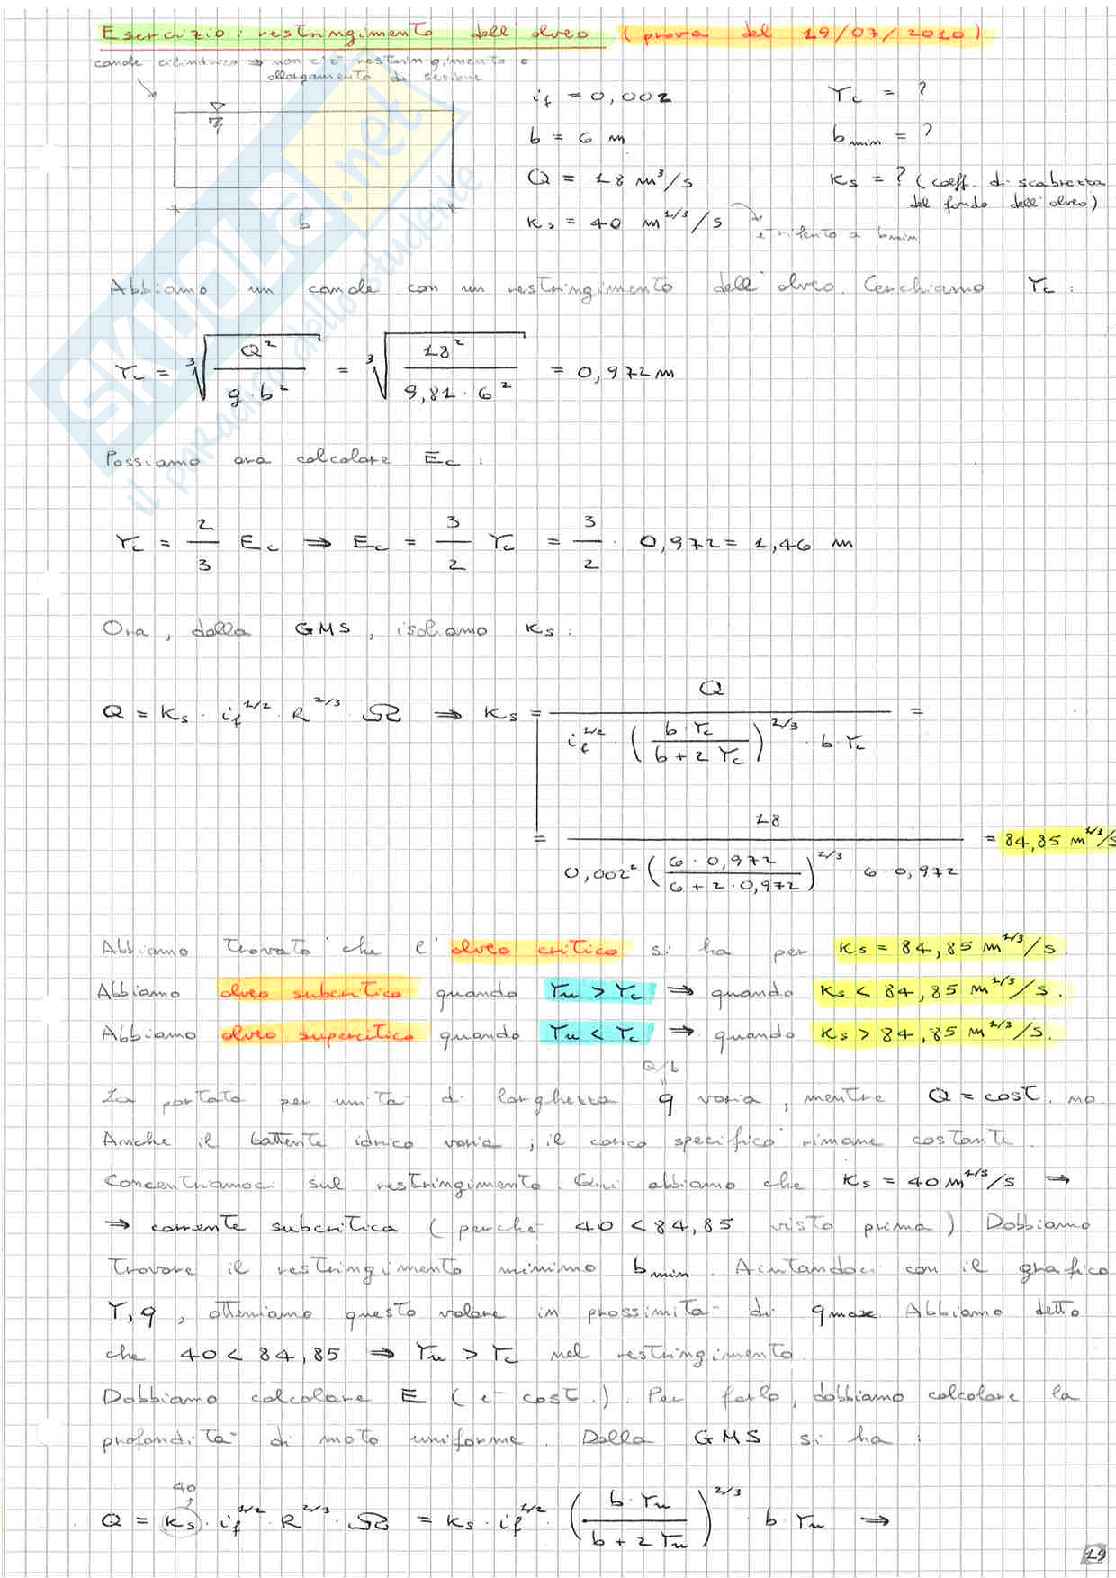 Esercizio: restringimento dell'alveo (prova del 19/07/2010)
canale cilindrico → non c'è restringimento e
allargamento di sezione
i_f = 0,002
Y_c = ?
b = 6 m
b_min = ?
Q = 18 m³/s
K_s = ? (coeff. di scabrezza
del fondo dell'alveo)
K_s = 40 m^1/3/s
è riferito a b_min
b
Abbiamo un canale con un restringimento dell'alveo. Cerchiamo Y_c:
Y_c = ∛(Q²/(g·b²)) = ∛(18²/(9,81·6²)) = 0,972 m
Possiamo ora calcolare E_c:
Y_c = 2/3 E_c ⇒ E_c = 3/2 Y_c = 3/2 · 0,972 = 1,46 m
Ora, dalla GMS, isoliamo K_s:
Q = K_s · i_f^1/2 · R^2/3 · Ω ⇒ K_s = Q / (i_f^1/2 · (b·Y_c / (b+2Y_c))^2/3 · b·Y_c) =
= 18 / (0,002² (6·0,972 / (6+2·0,972))^2/3 6·0,972) = 84,85 m^1/3/s
Abbiamo trovato che l'alveo critico si ha per K_s = 84,85 m^1/3/s.
Abbiamo alveo subcritico quando Y_u > Y_c ⇒ quando K_s < 84,85 m^1/3/s.
Abbiamo alveo supercritico quando Y_u < Y_c ⇒ quando K_s > 84,85 m^1/3/s.
Q/b
La portata per unità di larghezza q varia, mentre Q = cost. no.
Anche il battente idrico varia, il carico specifico rimane costante.
Concentriamoci sul restringimento. Qui abbiamo che K_s = 40 m^1/3/s →
→ corrente subcritica (perché 40 < 84,85 visto prima). Dobbiamo
trovare il restringimento minimo b_min. Aiutandoci con il grafico
Y,q, otteniamo questo valore in prossimità di q_max. Abbiamo detto
che 40 < 84,85 ⇒ Y_u > Y_c nel restringimento.
Dobbiamo calcolare E (è cost.). Per farlo, dobbiamo calcolare la
profondità di moto uniforme. Dalla GMS si ha:
40
Q = K_s · i_f^1/2 · R^2/3 · Ω = K_s · i_f^1/2 · (b·Y_u / (b+2Y_u))^2/3 · b·Y_u →
19
SKUOLA.net
il paradiso dello studente